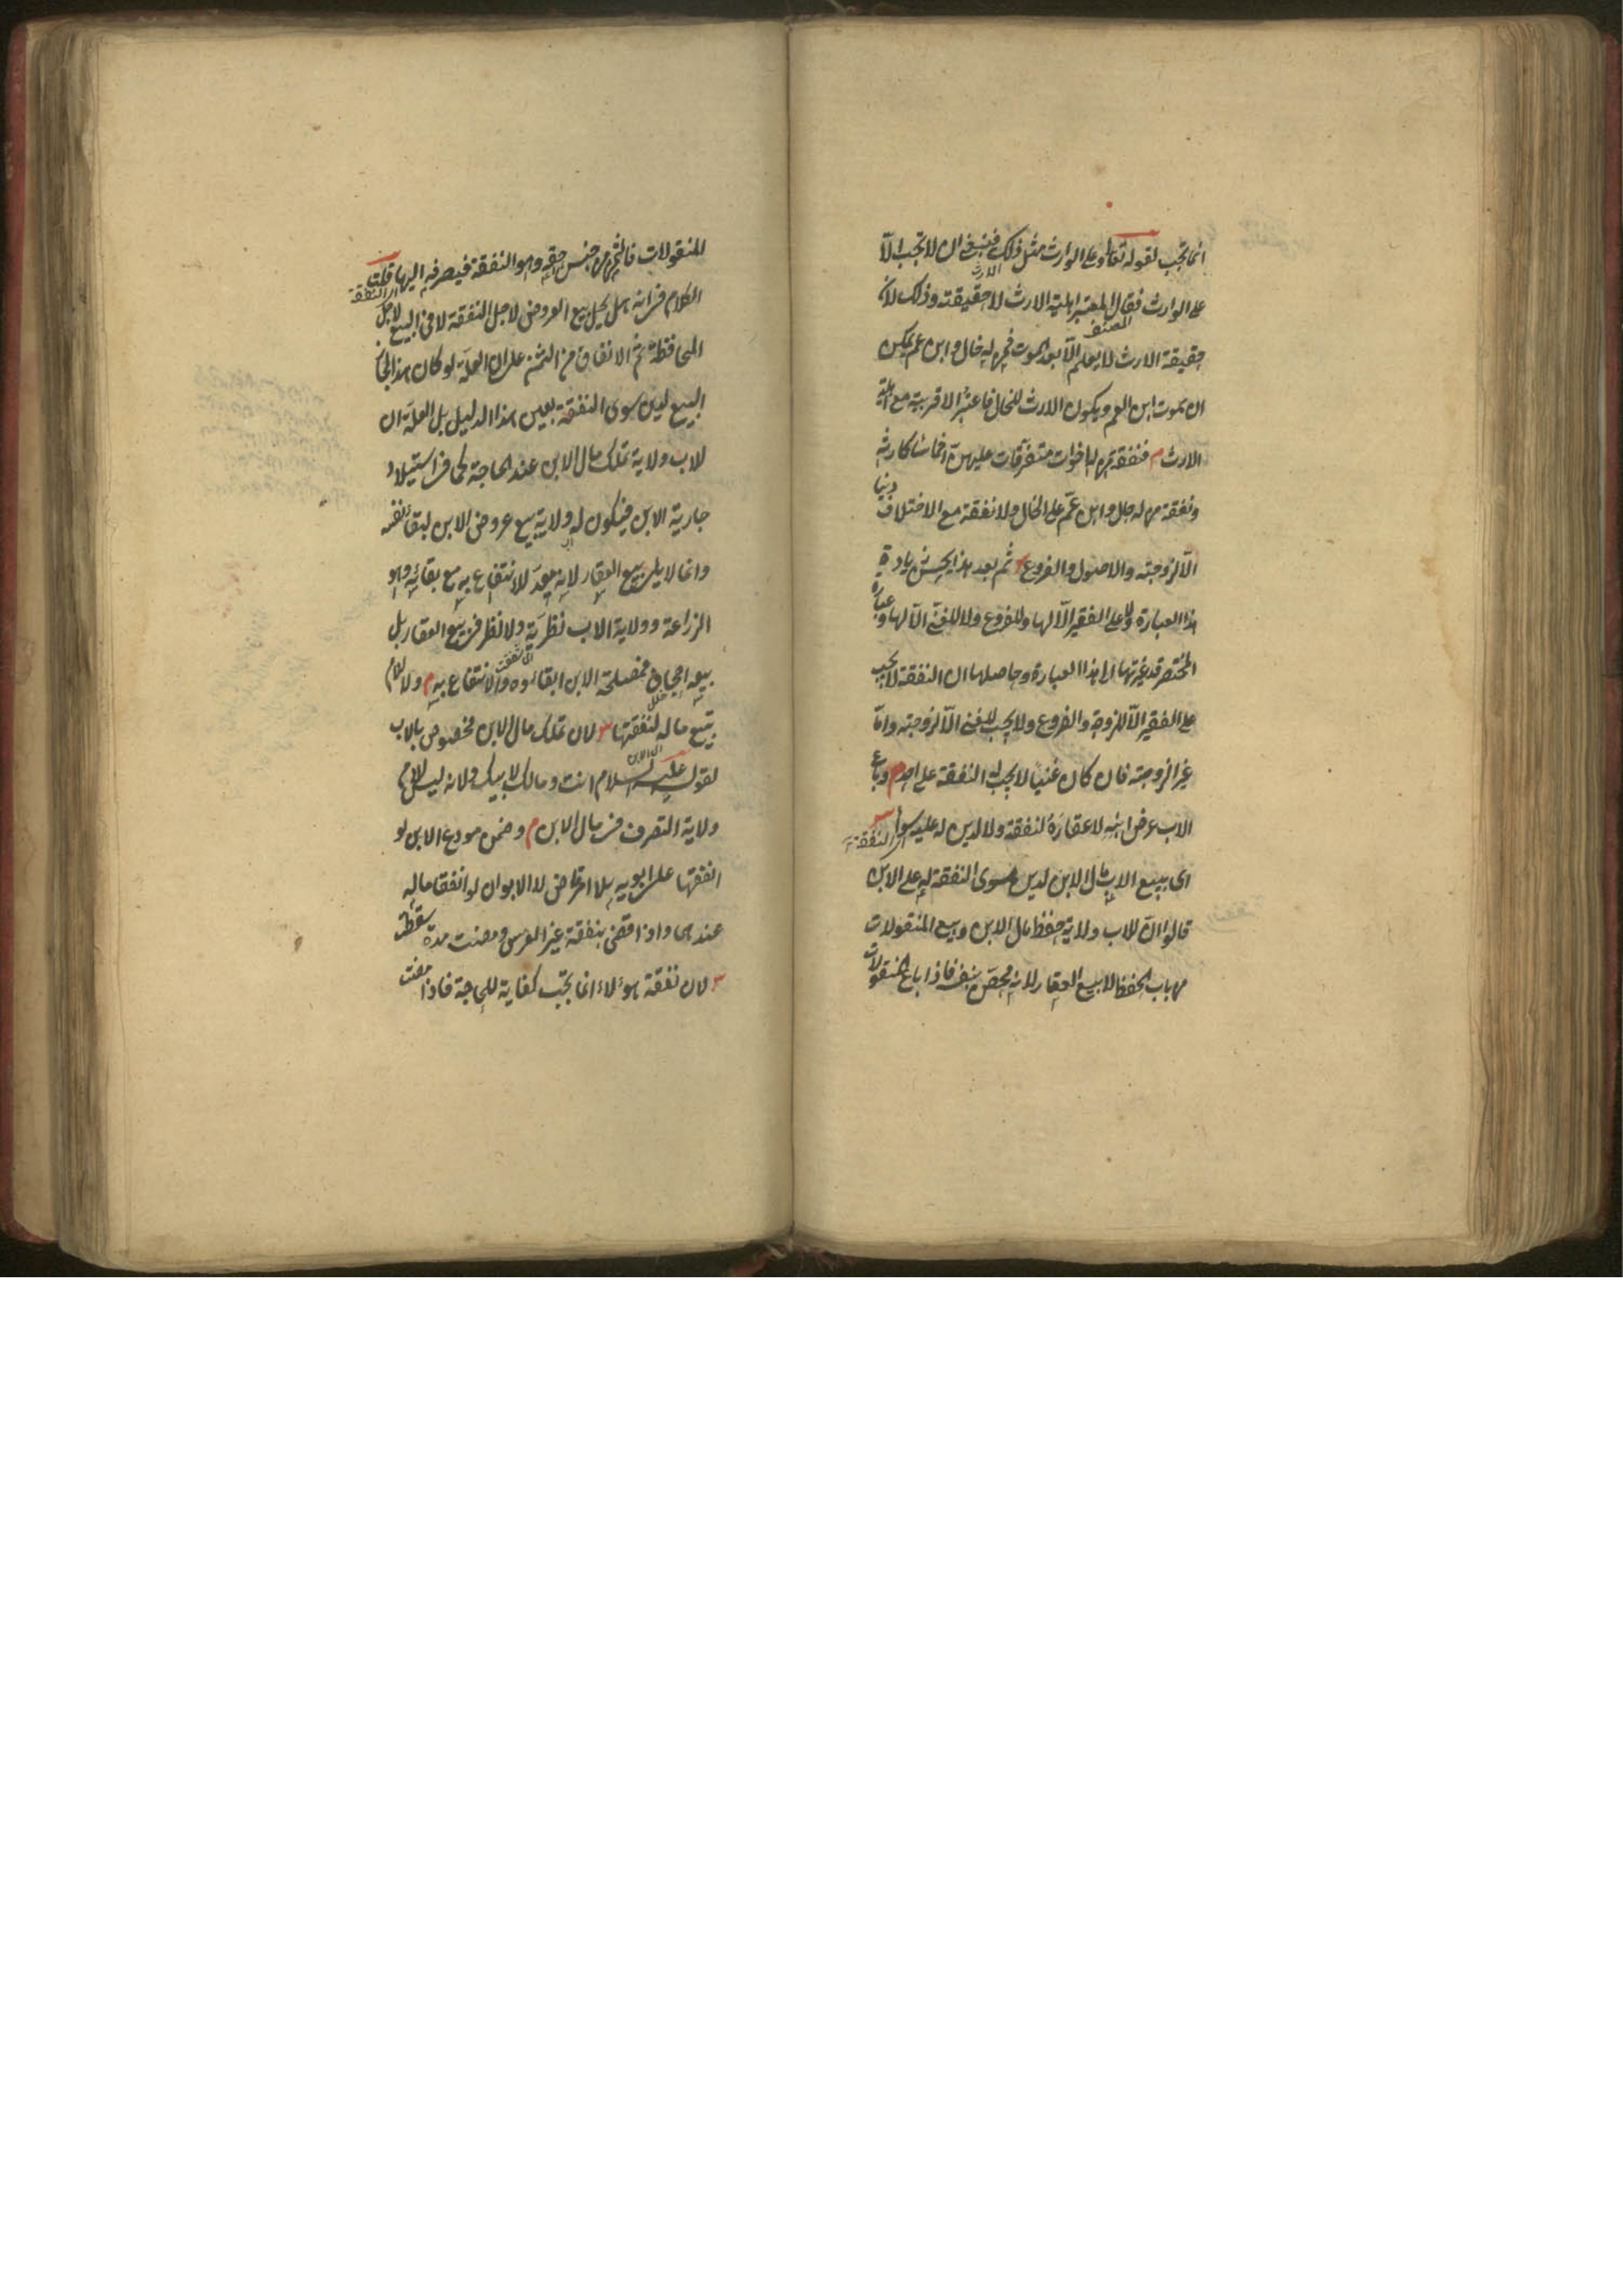 انما تجب لقوله تعالى وعلى الوارث مثل ذلك فينبغى ان لا تجب الا
على الوارث فقال المعتبر اهلية الارث لا حقيقته وذلك لان
حقيقة الارث لا يعلم الا بعد الموت فمن له خال وابن عم يمكن
ان يموت ابن العم ويكون الارث للخال فاعتبر الاقربية مع اهلية
الارث م فنفقة من له اخوات متفرقات عليهن اخماسا كارثه
ونفقة من له خال وابن عم على الخال ولا نفقة مع الاختلاف دينا
الا لزوجته والاصول والفروع ثم بعد هذا يحسن زيادة
هذا العبارة ولا على الفقير الا لها وللفروع ولا للغنى الا لها وعبارة
المختصر قد غيرتها الى هذا العبارة وحاصلها ان النفقة لا يجب
على الفقير الا للزوجة والفروع ولا يجب للغنى الا لزوجته واما
غير الزوجة فان كان غنيا لا يجب له النفقة على احد م وباع
الاب عرض ابنه لا عقاره لنفقته ولا لدين له عليه سواها
اى النفقة
اى يبيع الاب مال الابن لدين سوى النفقة له على الابن
قالوا ان للاب ولاية حفظ مال الابن وبيع المنقولات
من باب الحفظ لا بيع العقار لانه محصن بنفسه فاذا باع المنقولات
المنقولات فالثمن من جنس حقه وهو النفقة فيصرفه اليها قلت
اى النفقة
الكلام فى انه هل يحل بيع العروض لاجل النفقة لا فى البيع لاجل
المحافظة ثم الانفاق من الثمن على ان العلة لو كان هذا لجاز
البيع لدين سوى النفقة بعين هذا الدليل بل العلة ان
للاب ولاية تملك مال الابن عند الحاجة كما فى استيلاد
جارية الابن فيكون له ولاية بيع عروض الابن لبقاء نفسه
وانما لا يلى بيع العقار لانه معد للانتفاع به مع بقائه وهو
الزراعة وولاية الاب نظرية ولا نظر فى بيع العقار بل
بيعه اجحاف فمصلحة الابن ابقاؤه والانتفاع به م ولا للام
بيع ماله لنفقتها لان تملك مال الابن مخصوص بالاب
لقوله عليه السلام انت ومالك لابيك ولانه ليس للام
ولاية التصرف فى مال الابن م وضمن مودع الابن لو
انفقها على ابويه بلا امر قاض لا الابوان لو انفقا ماله
عندهما واذا قضى بنفقة غير العرس ومضت مدة سقطت
لان نفقة هؤلاء انما تجب كفاية للحاجة فاذا مضت